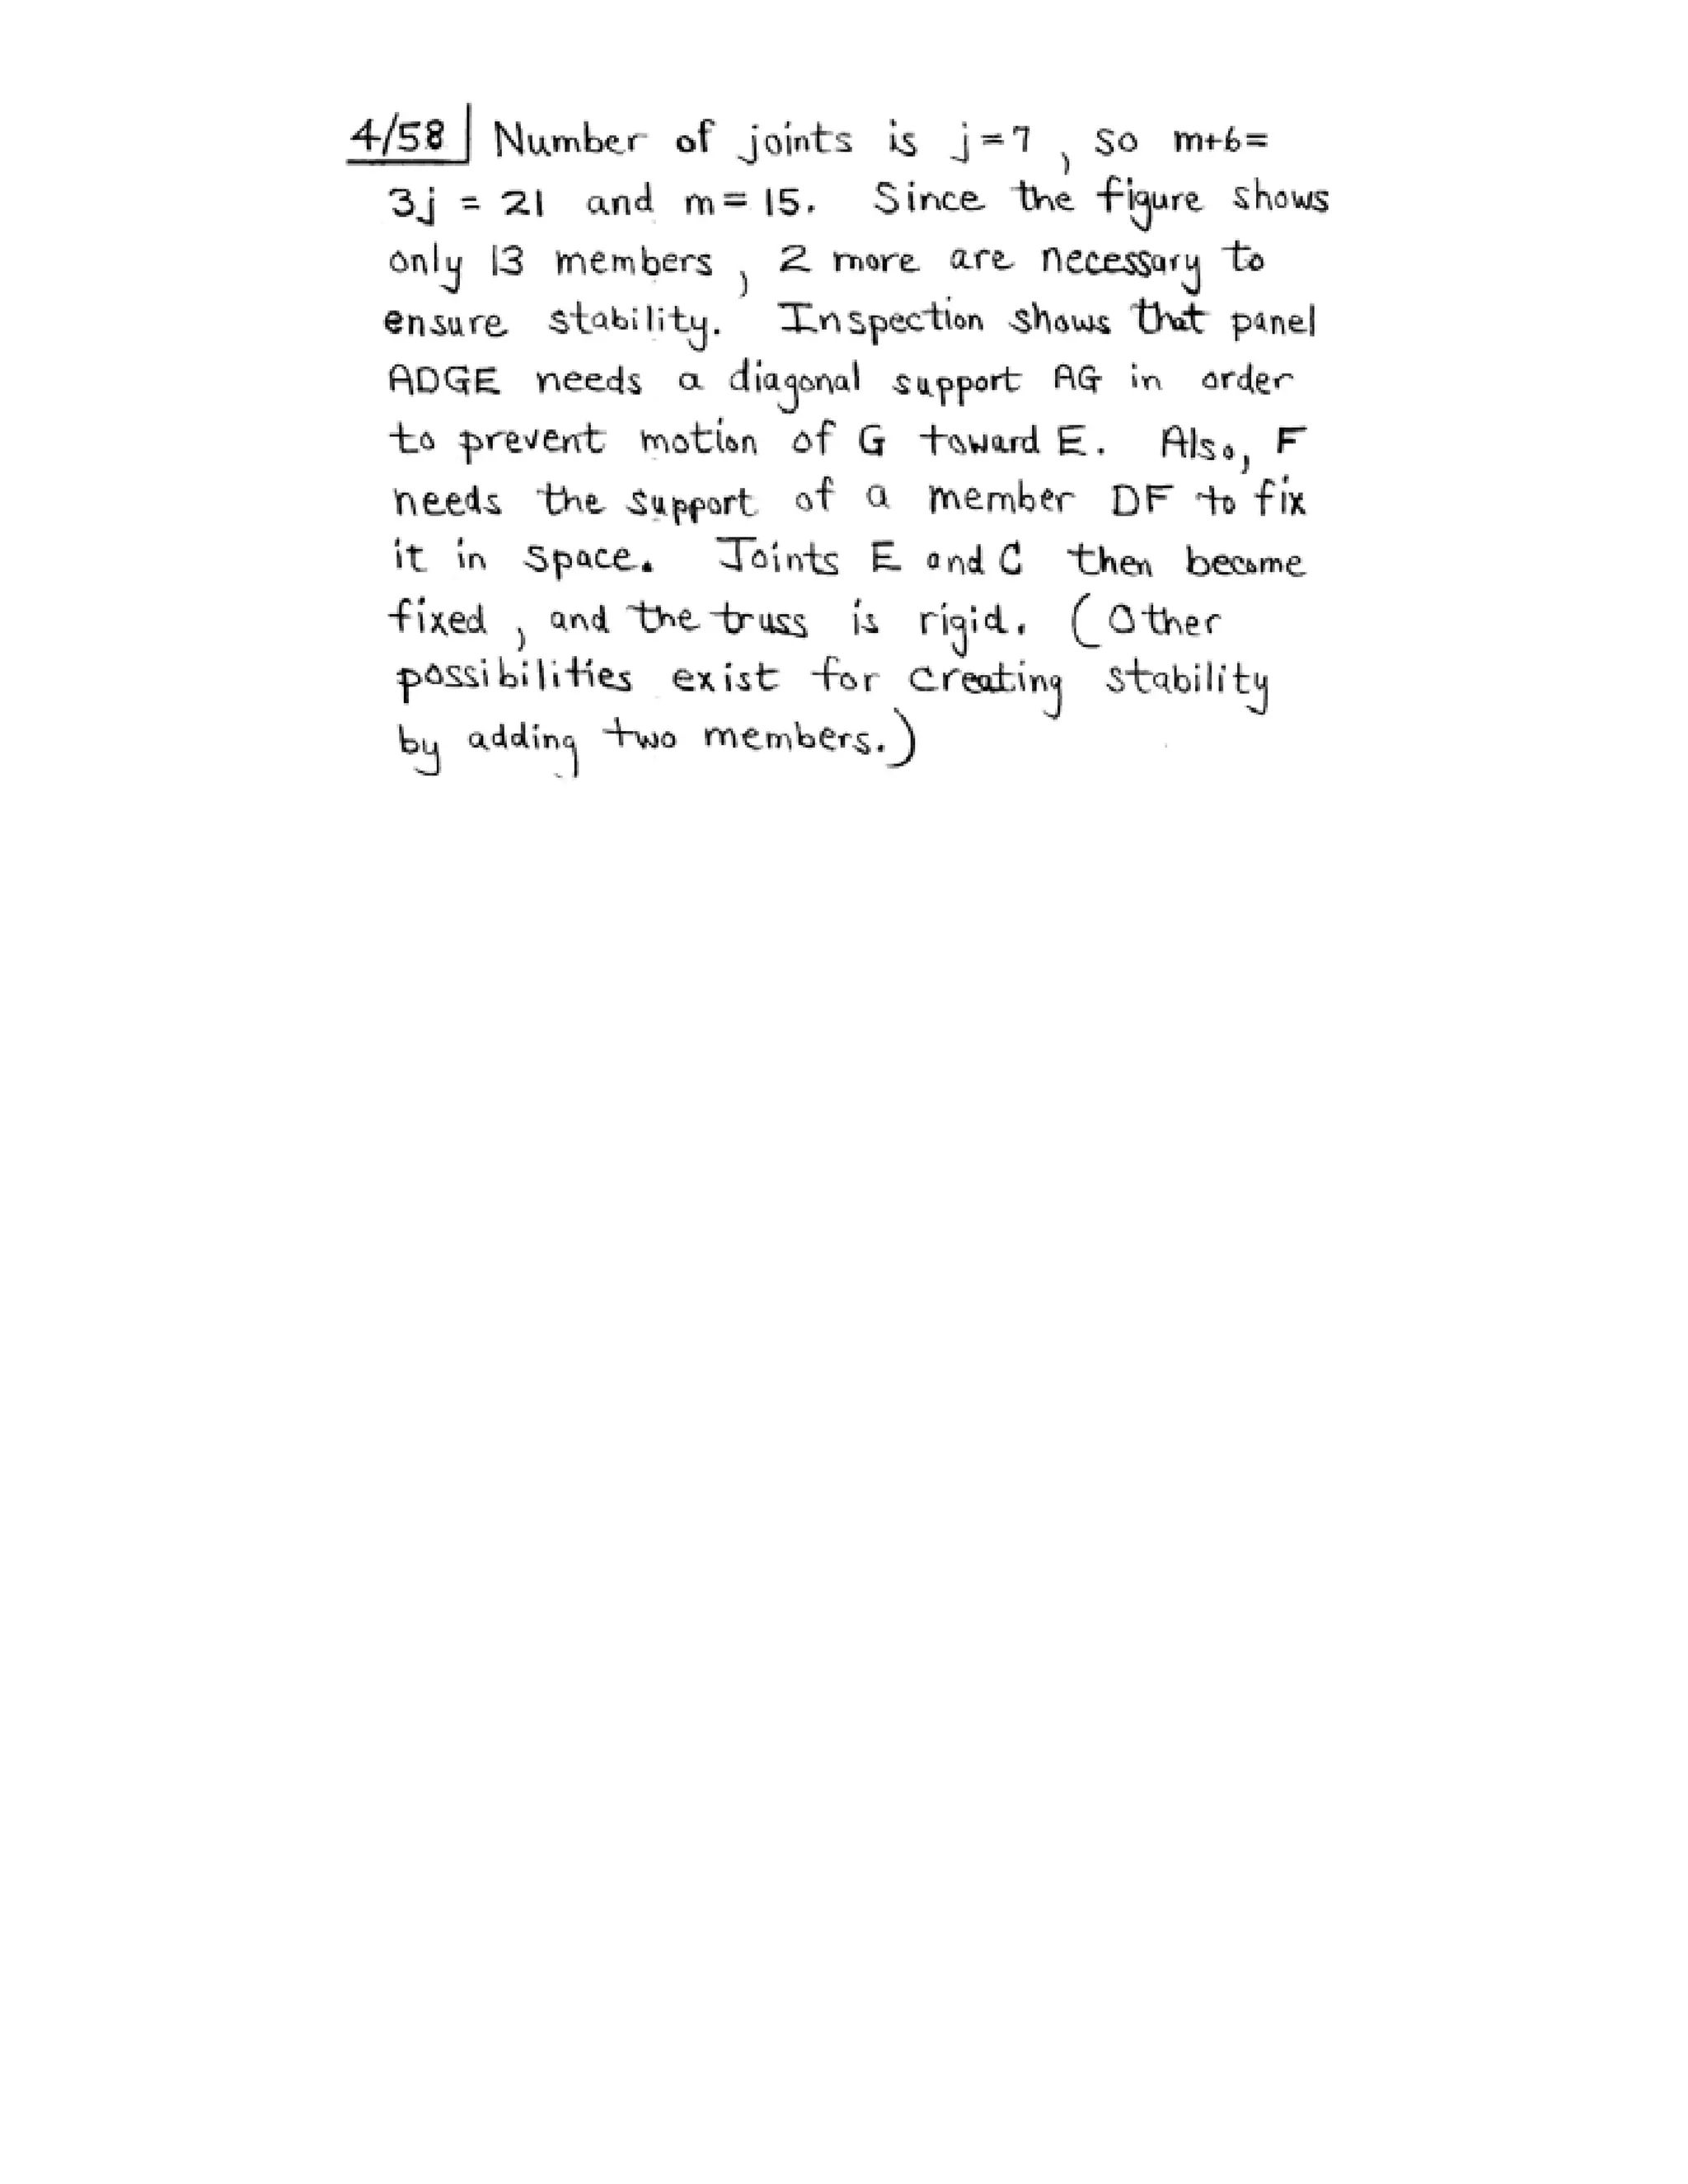 4/58 Number of joints is j=7, so m+6=
3j = 21 and m = 15. Since the figure shows
only 13 members, 2 more are necessary to
ensure stability. Inspection shows that panel
ADGE needs a diagonal support AG in order
to prevent motion of G toward E. Also, F
needs the support of a member DF to fix
it in space. Joints E and C then become
fixed, and the truss is rigid. (Other
possibilities exist for creating stability
by adding two members.)